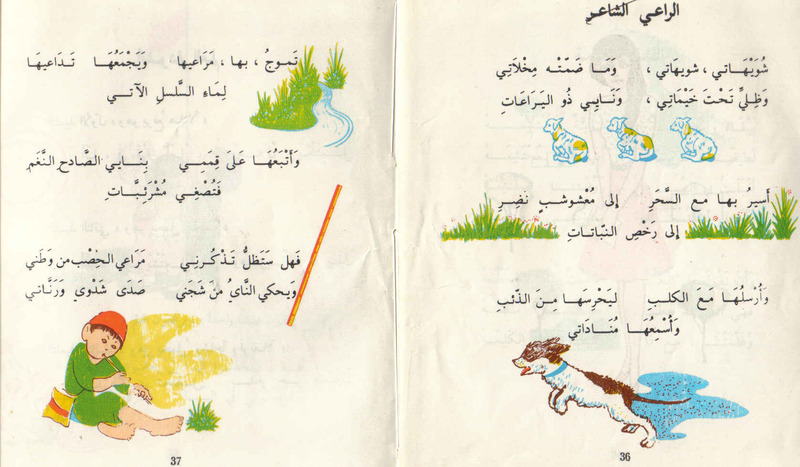 الراعي الشاعر
شُوَيْهَاتي، شويهَاتي، وَمَا ضَمَّتْه مِخْلَاتِي
وَظِلِّي تَحْتَ خَيْمَاتِي، وَنَايِي ذُو اليَرَاعَاتِ
أَسِيرُ بها مع السَّحَرِ إلى مُعْشوشبٍ نَضِرِ
إلى رَخْصِ النّبَاتَاتِ
وَأُرْسلُهَا مَعَ الكلبِ ليَحْرِسَهَا مِنَ الذّئبِ
وَأُسْمِعُهَا مُنَادَاتي
36
تَموجُ، بها، مَرَاعيها وَيَجْمَعُهَا تَدَاعيهَا
لِمَاءِ السَّلسلِ الآتي
وَأَتْبَعُهَا عَلَى قِمَمِي بِنَايِي الصَّادحِ النَّغَمِ
فَتُصْغِي مُشْرَئِبَّاتِ
فَهل سَتَظَلُّ تَذْكُرنِي مَرَاعِي الخِصْبِ من وَطَنِي
وَيحكي النَّايُ مِنْ شَجَنِي صَدَى شَدْوِي وَرَنَّاتي
37